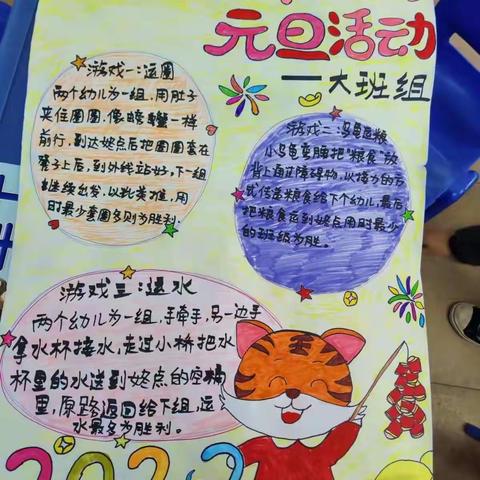 元旦活动
——大班组
游戏一:运圈
两个幼儿为一组,用肚子
夹住圈圈,像螃蟹一样
前行,到达终点后把圈圈套在
凳子上后,到外线站好,下一组
继续出发,以此类推,用
时最少套圈多则为胜利。
游戏二:乌龟运粮
小乌龟弯腰把“粮食”放
背上面过障碍物,以接力的方
式传送粮食给下个幼儿,最后
把粮食运到终点用时最少
的班级为胜。
游戏三:运水
两个幼儿为一组,手牵手,另一边手
拿水杯接水,走过小桥把水
杯里的水送到终点的空桶
里,原路返回给下组,运
水最多为胜利。
2022